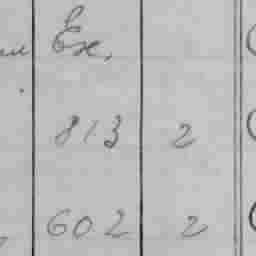 Ex.
813 2
602 2